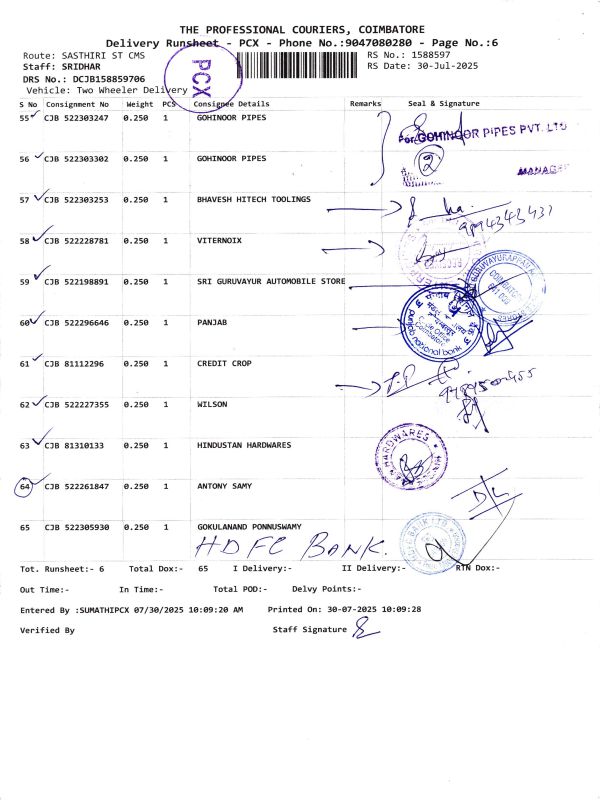 THE PROFESSIONAL COURIERS, COIMBATORE
Delivery Runsheet - PCX - Phone No.:9047080280 - Page No.:6
Route: SASTHIRI ST CMS
RS No.: 1588597
Staff: SRIDHAR
RS Date: 30-Jul-2025
DRS No.: DCJB158859706
Vehicle: Two Wheeler Delivery
PCX
S No Consignment No Weight PCS Consignee Details Remarks Seal & Signature
55 CJB 522303247 0.250 1 GOHINOOR PIPES
For GOHINOOR PIPES PVT. LTD
2
MANAGER
56 CJB 522303302 0.250 1 GOHINOOR PIPES
57 CJB 522303253 0.250 1 BHAVESH HITECH TOOLINGS
58 CJB 522228781 0.250 1 VITERNOIX
59 CJB 522198891 0.250 1 SRI GURUVAYUR AUTOMOBILE STORE
60 CJB 522296646 0.250 1 PANJAB
punjab national bank
61 CJB 81112296 0.250 1 CREDIT CROP
62 CJB 522227355 0.250 1 WILSON
63 CJB 81310133 0.250 1 HINDUSTAN HARDWARES
64 CJB 522261847 0.250 1 ANTONY SAMY
D/L
65 CJB 522305930 0.250 1 GOKULANAND PONNUSWAMY
HDFC BANK.
Tot. Runsheet:- 6 Total Dox:- 65 I Delivery:- II Delivery:- RTN Dox:-
Out Time:- In Time:- Total POD:- Delvy Points:-
Entered By :SUMATHIPCX 07/30/2025 10:09:20 AM Printed On: 30-07-2025 10:09:28
Verified By Staff Signature